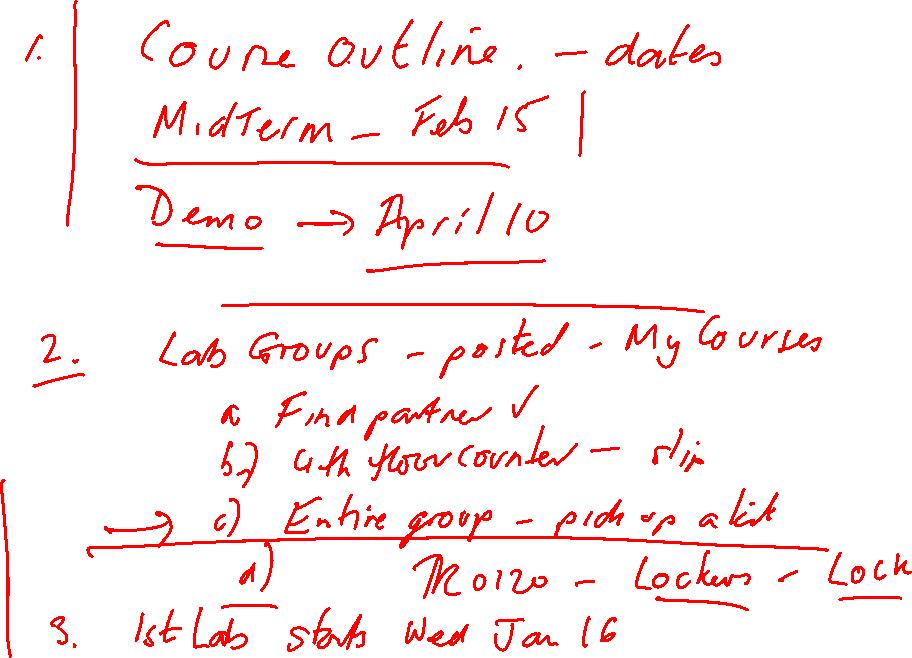 1. Course Outline. - dates
MidTerm - Feb 15
Demo → April 10
2. Lab Groups - posted - My Courses
a Find partner ✓
b.) 4th floor counter - slip
→ c) Entire group - pick up a kit
d) TR0120 - Lockers - Lock
3. 1st Lab starts Wed Jan 16